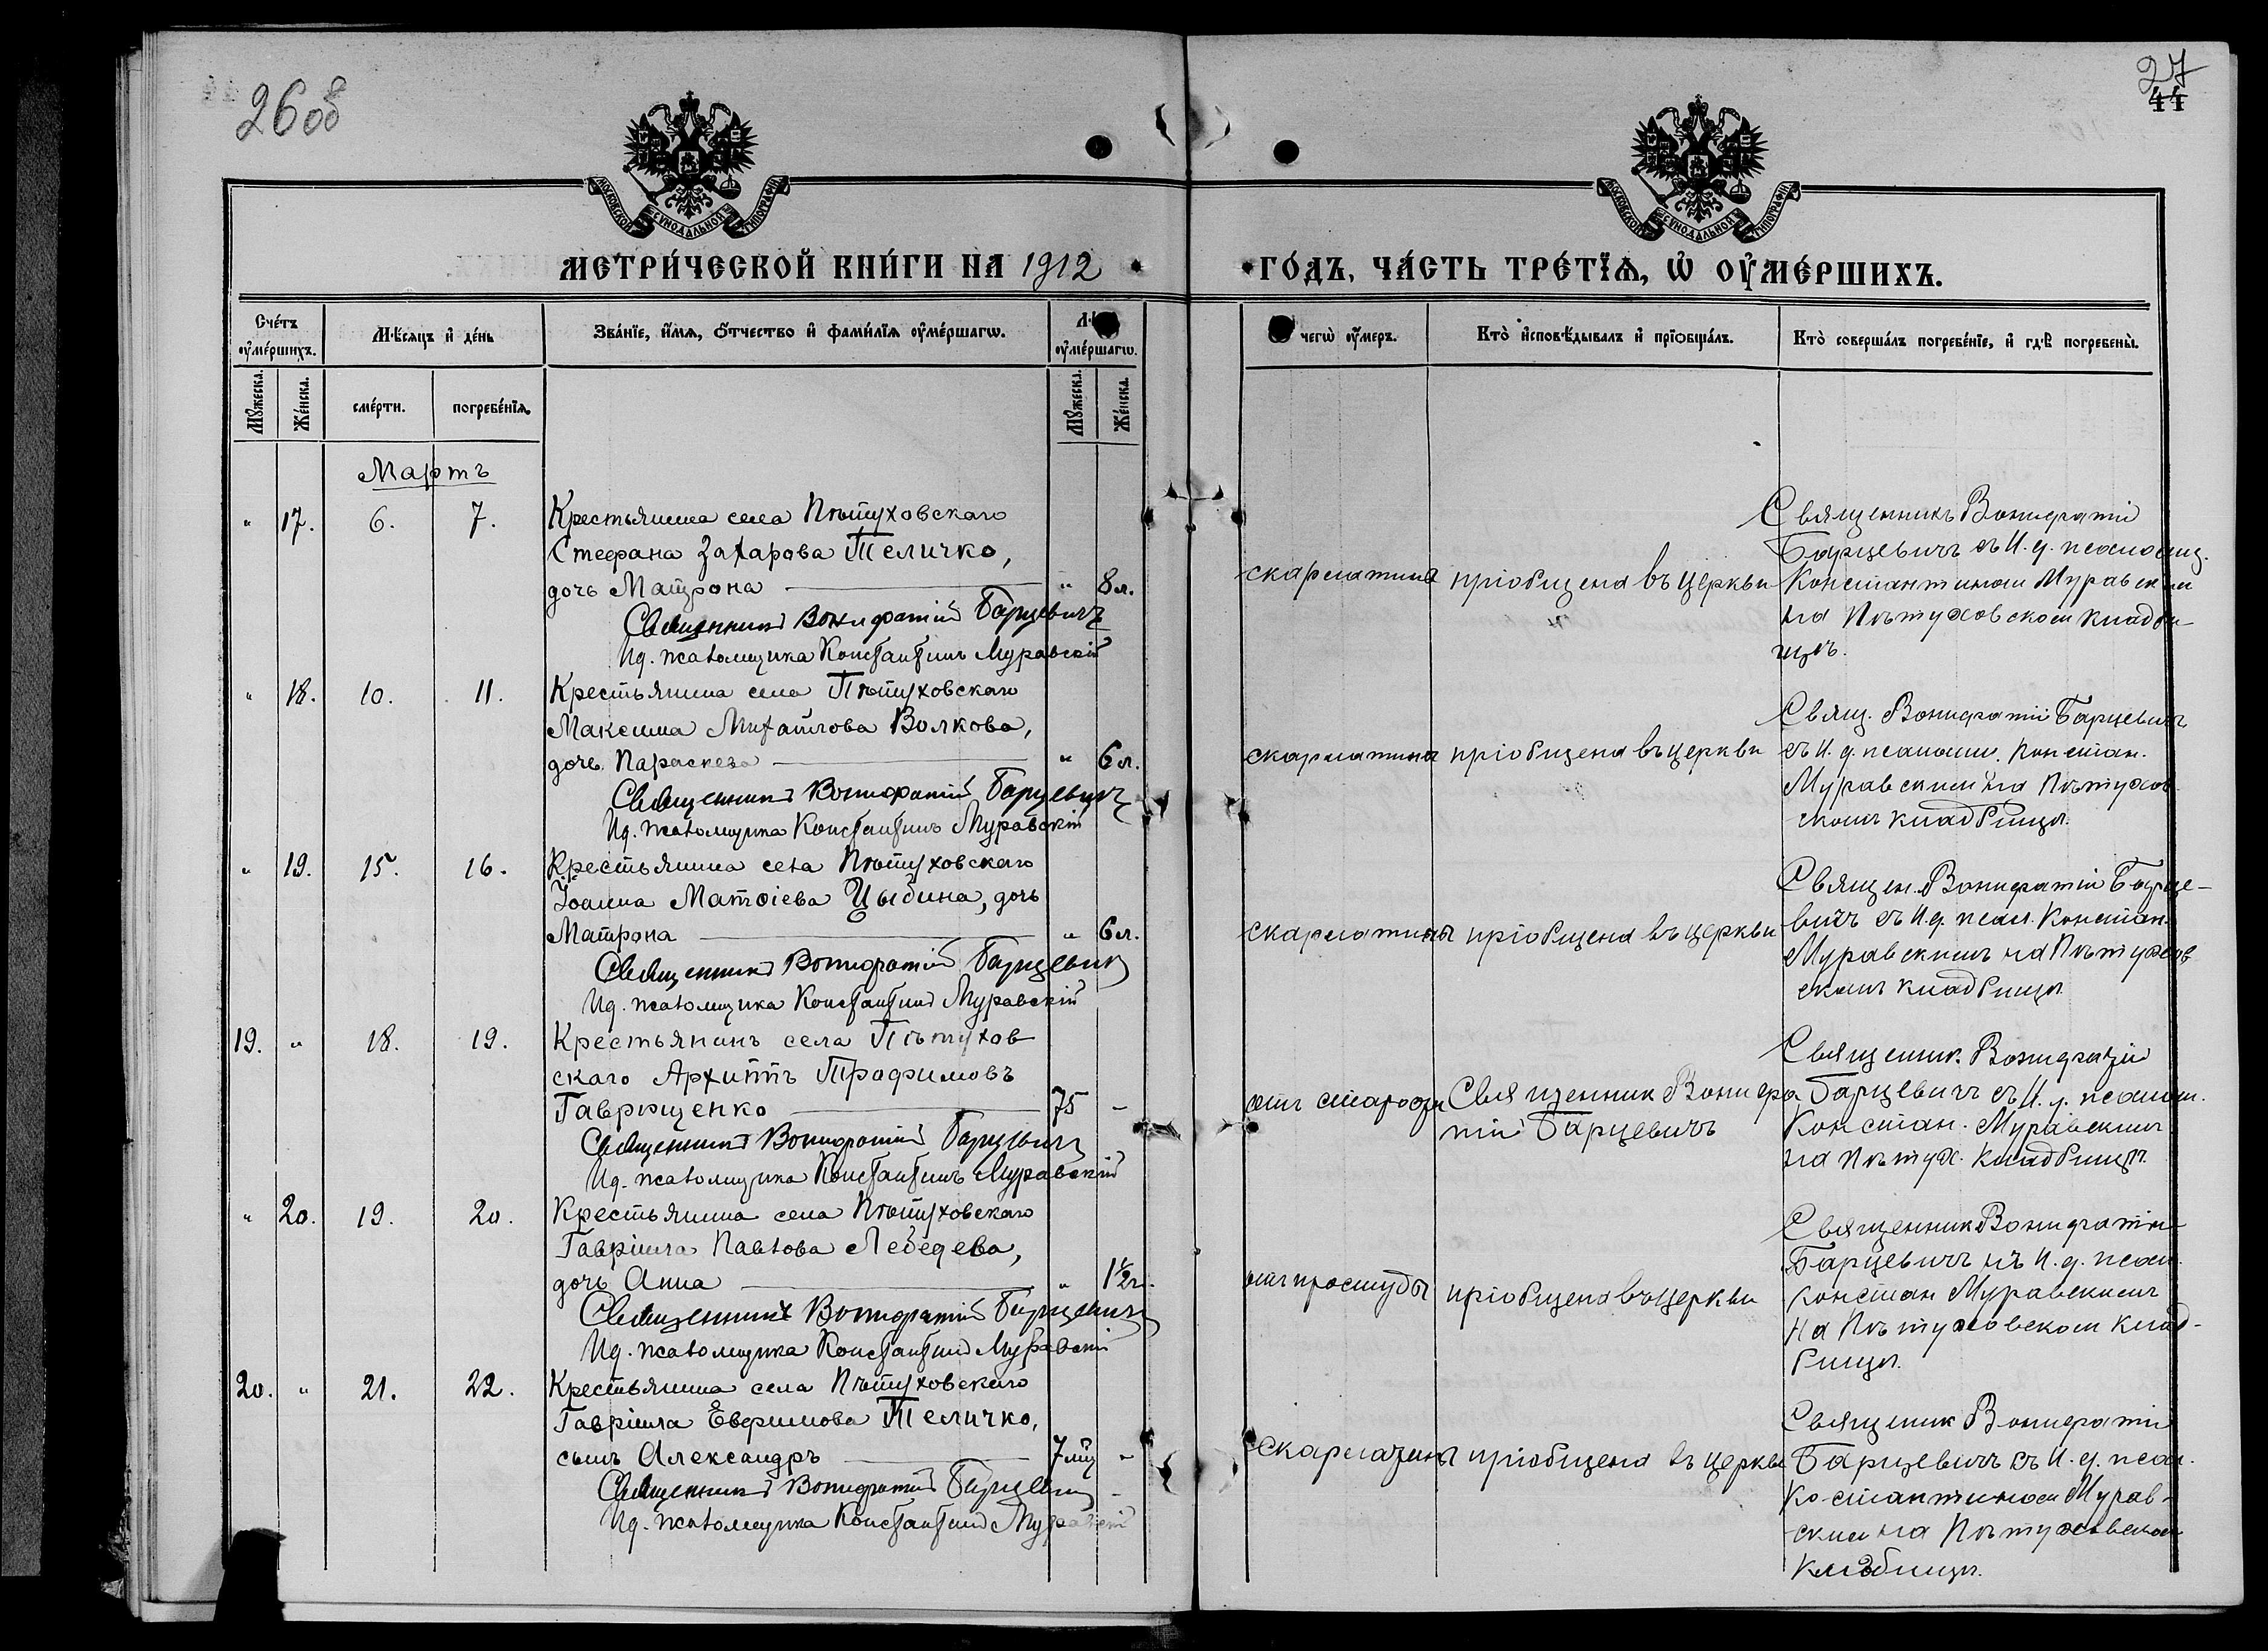 26 об
27
44
МОСКОВСКОЙ СѴНОДАЛЬНОЙ ТИПОГРАФІИ
МОСКОВСКОЙ СѴНОДАЛЬНОЙ ТИПОГРАФІИ
МЕТРИ́ЧЕСКОЙ КНИ́ГИ НА 1912
ГО́ДЪ, ЧА́СТЬ ТРЕ́ТЇѦ, Ѡ҆ ОУ҆МЕ́РШИХЪ.
Сче́тъ оу҆ме́ршихъ.
Мѣ́сяцъ и҆ де́нь
Зва́нїе, и҆́мя, ѻ҆́тчество и҆ фами́лїя оу҆ме́ршагѡ.
оу҆ме́ршагѡ.
чегѡ̀ оу҆́меръ.
Кто̀ и҆сповѣ́дывалъ и҆ прїѻбща́лъ.
Кто̀ соверша́лъ погребе́нїе, и҆ гдѣ̀ погребены̀.
Мꙋ́жеска.
Же́нска.
сме́рти.
погребе́нїя.
Мꙋ́жеска.
Же́нска.
Мартъ
" 17. 6. 7. Крестьянина села Пѣтуховскаго
Стефана Захарова Теличко,
дочь Матрона " 8 л.
Священникъ Вонифатій Барцевичъ
И д. псаломщика Константинъ Муравскій
скарлатина
пріобщена въ церкви
Священникъ Вонифатій
Барцевичъ съ И. д. псаломщ.
Константином Муравским
на Пѣтуховском кладби-
щѣ.
" 18. 10. 11. Крестьянина села Пѣтуховскаго
Максима Михайлова Волкова,
дочь Параскева " 6 л.
Священникъ Вонифатій Барцевичъ
И д. псаломщика Константинъ Муравскій
скарлатина
пріобщена въ церкви
Свящ. Вонифатій Барцевичъ
съ И. д. псаломщ. Констан.
Муравским на Пѣтухов
скомъ кладбищѣ.
" 19. 15. 16. Крестьянина села Пѣтуховскаго
Іоанна Матѳіева Цыбина, дочь
Матрона " 6 л.
Священникъ Вонифатій Барцевичъ
И д. псаломщика Константинъ Муравскій
скарлатины
пріобщена въ церкви
Священ. Вонифатій Барце-
вичъ съ И. д. псал. Констан.
Муравскимъ на Пѣтухов
скомъ кладбищѣ
19. " 18. 19. Крестьянинъ села Пѣтухов
скаго Архиппъ Трофимовъ
Гаврющенко 75 -
Священникъ Вонифатій Барцевичъ
И д. псаломщика Константинъ Муравскій
отъ старости
Священник Вонифа
тій Барцевичъ
Священник. Вонифатій
Барцевичъ съ И. д. псалом.
Констан. Муравскимъ
на Пѣтух. кладбищѣ.
" 20. 19. 20. Крестьянина села Пѣтуховскаго
Гавріила Павлова Лебедева,
дочь Анна " 1½ г.
Священникъ Вонифатій Барцевичъ
И д. псаломщика Константинъ Муравскій
отъ простуды
пріобщена въ церкви
Священник Вонифатій
Барцевичъ съ И. д. псал.
Констан Муравскимъ
на Пѣтуховском клад-
бищѣ.
20. " 21. 22. Крестьянина села Пѣтуховскаго
Гавріила Евфимова Теличко,
сынъ Александръ 7 мц -
Священникъ Вонифатій Барцевичъ
И д. псаломщика Константинъ Муравскій
скарлатины
пріобщена въ церкви
Священик Вонифатій
Барцевичъ съ И. д. псал.
Константином Мурав-
ским на Пѣтуховском
кладбищѣ.